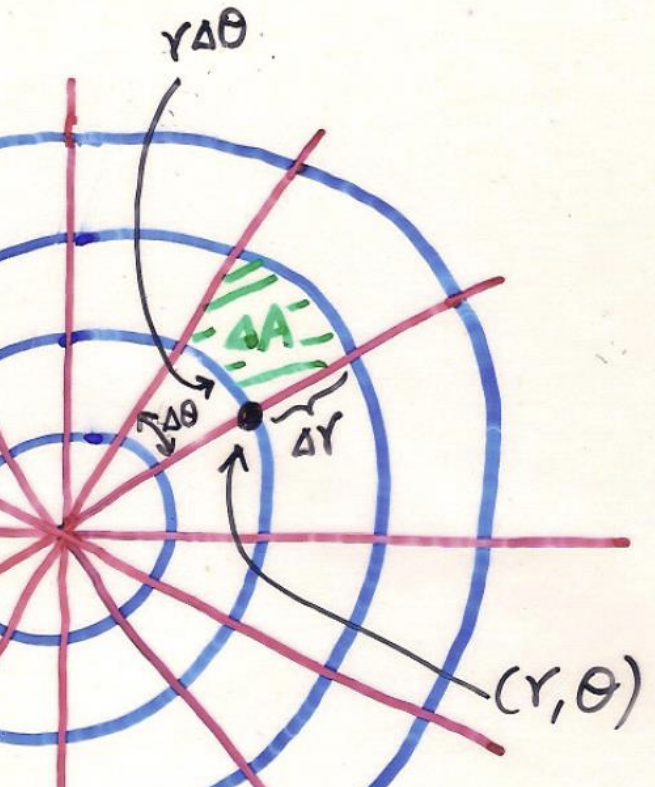 rΔθ
ΔA
Δθ
Δr
(r, θ)